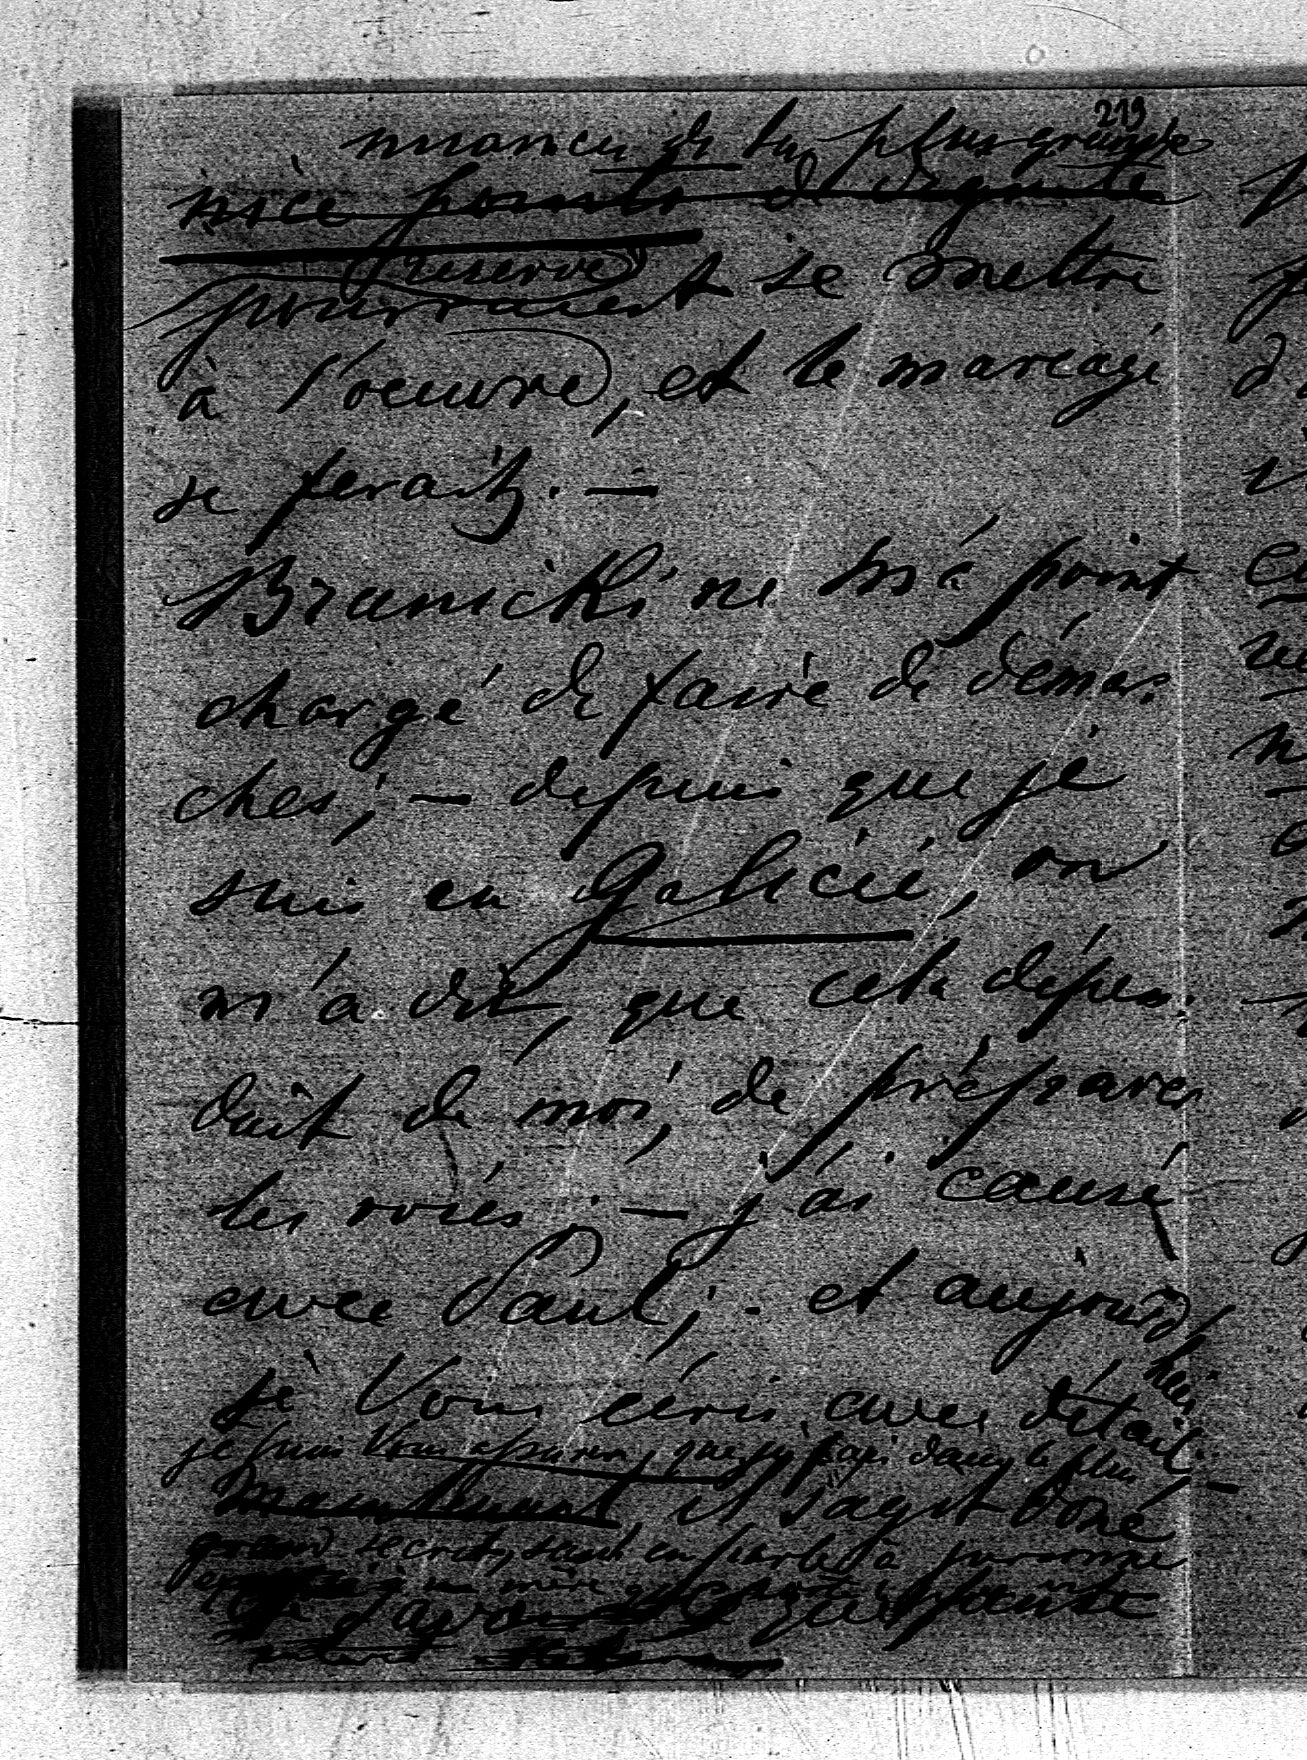 219
nuances de la plus grande
nièce
(reserve)
pourraient se mettre
à l'oeuvre, et le mariage
se ferait. —
Branicki ne m'a point
chargé de faire de démar-
ches; — depuis que je
suis en Galicie, on
m'a dit, que cela dépen-
dait de moi, de préparer
les voies; — j'ai causé
avec Paul; - et aujourd'
hui
je Vous écris avec détail. —
je puis Vous assurer, que je dans le plus
Maintenant il s'agit donc
grand secret, sans en parler à personne
à ma mère